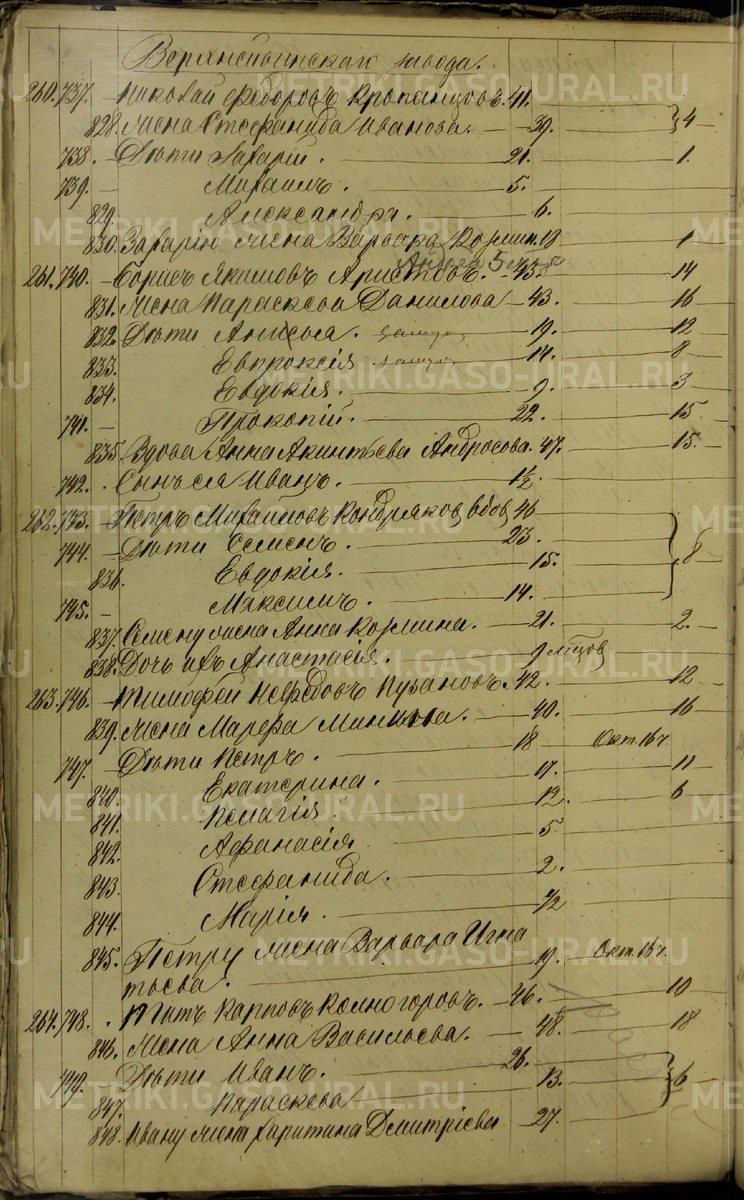 Верхисетскаго завода.
260. 737. Николай Федоровъ Кропанцовъ. 41.
828. Жена Стефанида Иванова. 39. 4
738. Дѣти Захарій. 21. 1.
739. Михаилъ. 5.
829. Александра. 6.
830. Захарію жена Варвара Козмин. 18 1
261. 740. Борисъ Якимовъ Аристовъ. 43. 14
831. Жена Параскева Данилова 43. 16
832. Дѣти Анисья. замуж 19. 12
833. Евпроксія замуж 14. 8
834. Евдокія. 9. 3
741. Прокопій. 22. 15
835. Вдова Анна Акинтьева Андросова. 47. 15.
742. Сынъ ея Иванъ. 1 1/2
262. 743. Петръ Михаиловъ Кондраков вдов 46
744. Дѣти Семенъ. 23. 8
836. Евдокія. 15.
745. Максимъ. 14.
837. Семену жена Анна Козмина. 21. 2.
838. Дочь ихъ Анастасія. 9 мѣсяцов
263. 746. Тимофей Нефедовъ Пузановъ. 42. 12
839. Жена Марфа Минина. 40. 16
747. Дѣти Петръ. 18 Окт. 167
840. Екатерина. 17. 11
841. Пелагія 12. 6
842. Афанасія 5
843. Стефанида. 2.
844. Марія. 1/2
845. Петру жена Варвара Игна
тьева. 19. Окт. 167.
264. 748. Титъ Карповъ Колногоровъ. 46. 10
846. Жена Анна Васильева. 48. 18
749. Дѣти Иванъ. 26. 6
847. Параскева 13.
848. Ивану жена Харитина Дмитріева 27.
METRIKI.GASO-URAL.RU